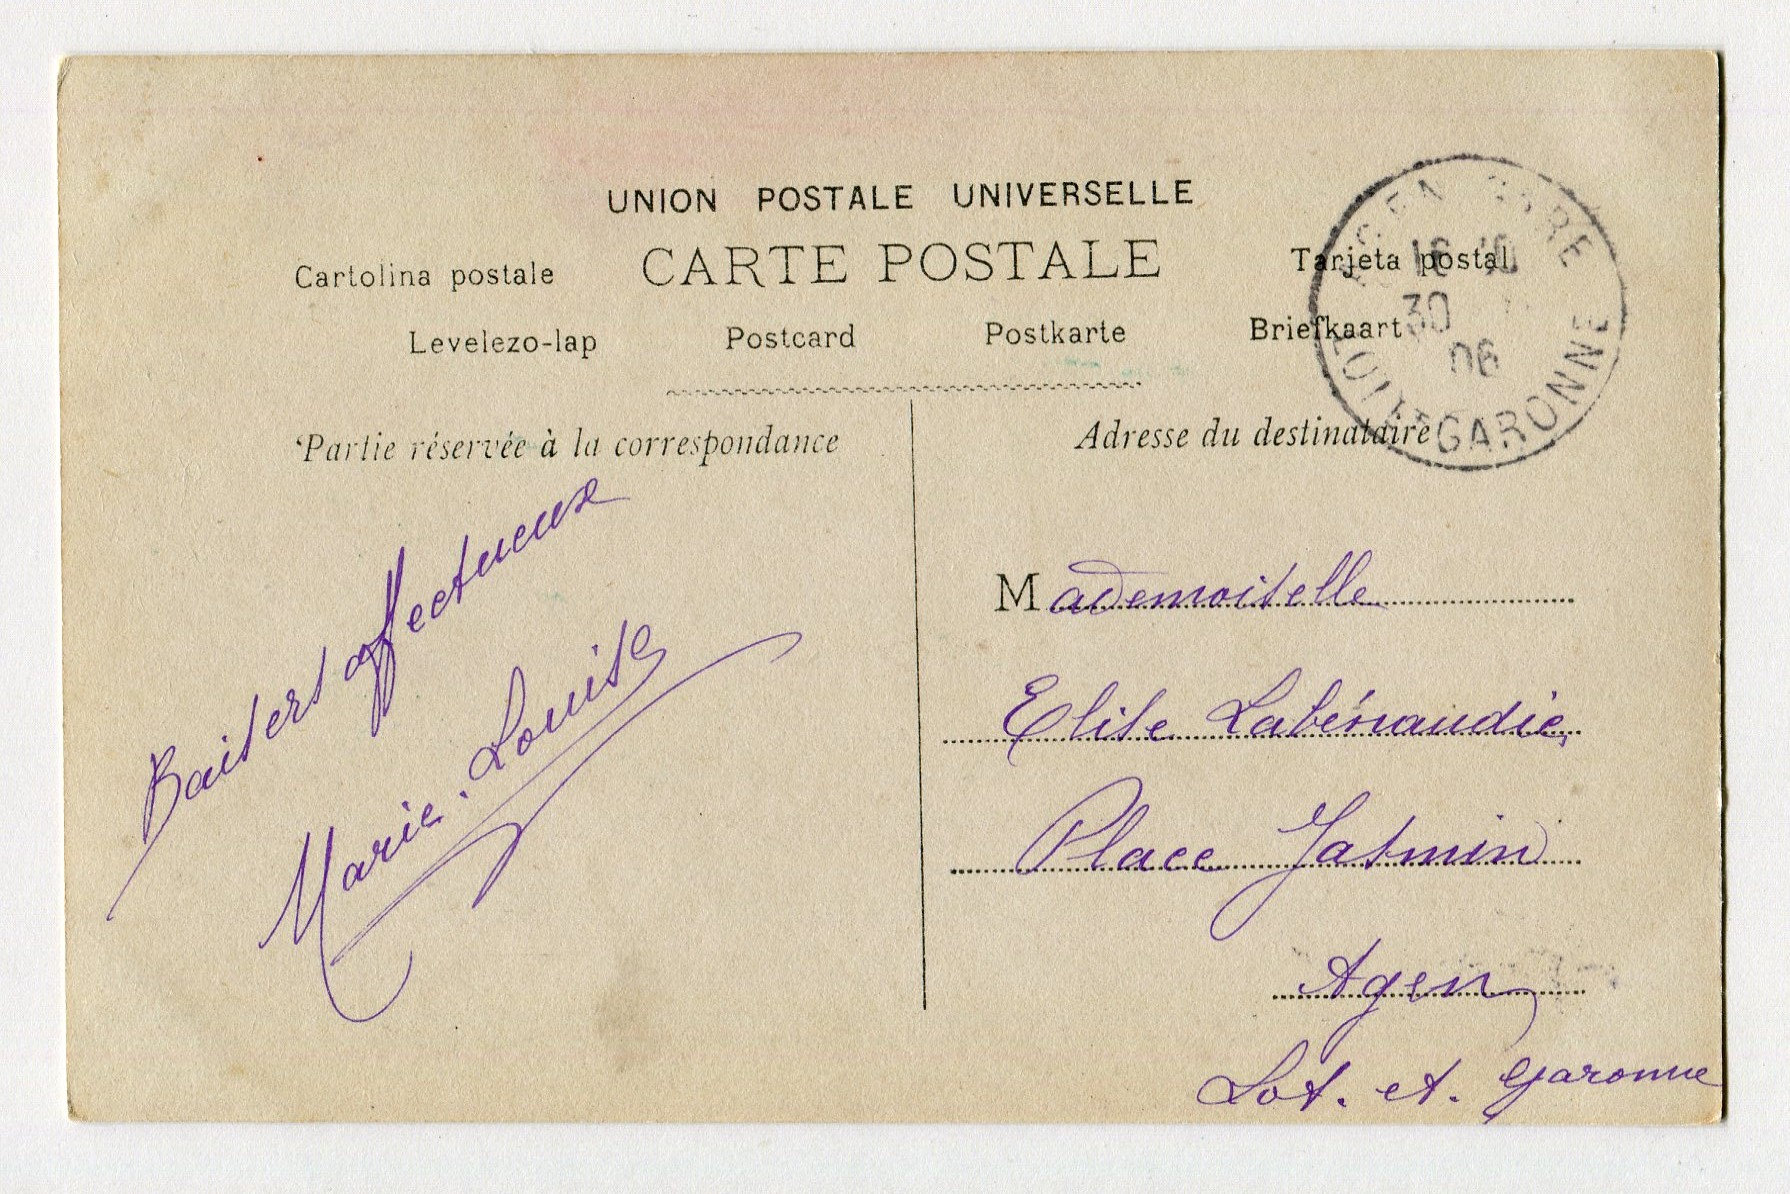 UNION POSTALE UNIVERSELLE
CARTE POSTALE
Cartolina postale
Tarjeta postal
Levelezo-lap
Postcard
Postkarte
Briefkaart
AGEN GARE
16
30
06
LOT-ET-GARONNE
Partie réservée à la correspondance
Adresse du destinataire
Baisers affectueux
Marie-Louise
Mademoiselle
Elise Labénaudie
Place Jasmin
Agen
Lot. et. Garonne